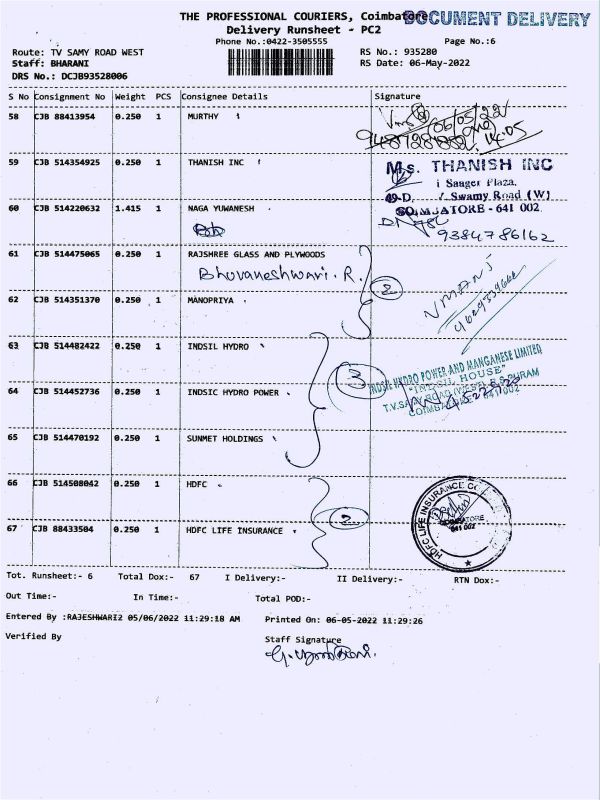 THE PROFESSIONAL COURIERS, Coimbatore DOCUMENT DELIVERY
Delivery Runsheet - PC2
Phone No.:0422-3505555 Page No.:6
Route: TV SAMY ROAD WEST RS No.: 935280
Staff: BHARANI RS Date: 06-May-2022
DRS No.: DCJB93528006
S No Consignment No Weight PCS Consignee Details Signature
58 CJB 88413954 0.250 1 MURTHY
06/05/22
14.05
59 CJB 514354925 0.250 1 THANISH INC
Ms. THANISH INC
i Sauger Plaza,
49-D, Swamy Road (W)
COIMBATORE - 641 002
60 CJB 514220632 1.415 1 NAGA YUWANESH
9384786162
61 CJB 514475065 0.250 1 RAJSHREE GLASS AND PLYWOODS
Bhuvaneshwari. R. 2
62 CJB 514351370 0.250 1 MANOPRIYA
63 CJB 514482422 0.250 1 INDSIL HYDRO
3
INDSIL HYDRO POWER AND MANGANESE LIMITED
"INDSIL HOUSE"
T.V.SAMY ROAD (WEST), R.S.PURAM
COIMBATORE - 641 002
64 CJB 514452736 0.250 1 INDSIC HYDRO POWER
65 CJB 514470192 0.250 1 SUNMET HOLDINGS
66 CJB 514508042 0.250 1 HDFC
2
HDFC LIFE INSURANCE CO
COIMBATORE
641 002
67 CJB 88433504 0.250 1 HDFC LIFE INSURANCE
Tot. Runsheet:- 6 Total Dox:- 67 I Delivery:- II Delivery:- RTN Dox:-
Out Time:- In Time:- Total POD:-
Entered By :RAJESHWARI2 05/06/2022 11:29:18 AM Printed On: 06-05-2022 11:29:26
Verified By Staff Signature